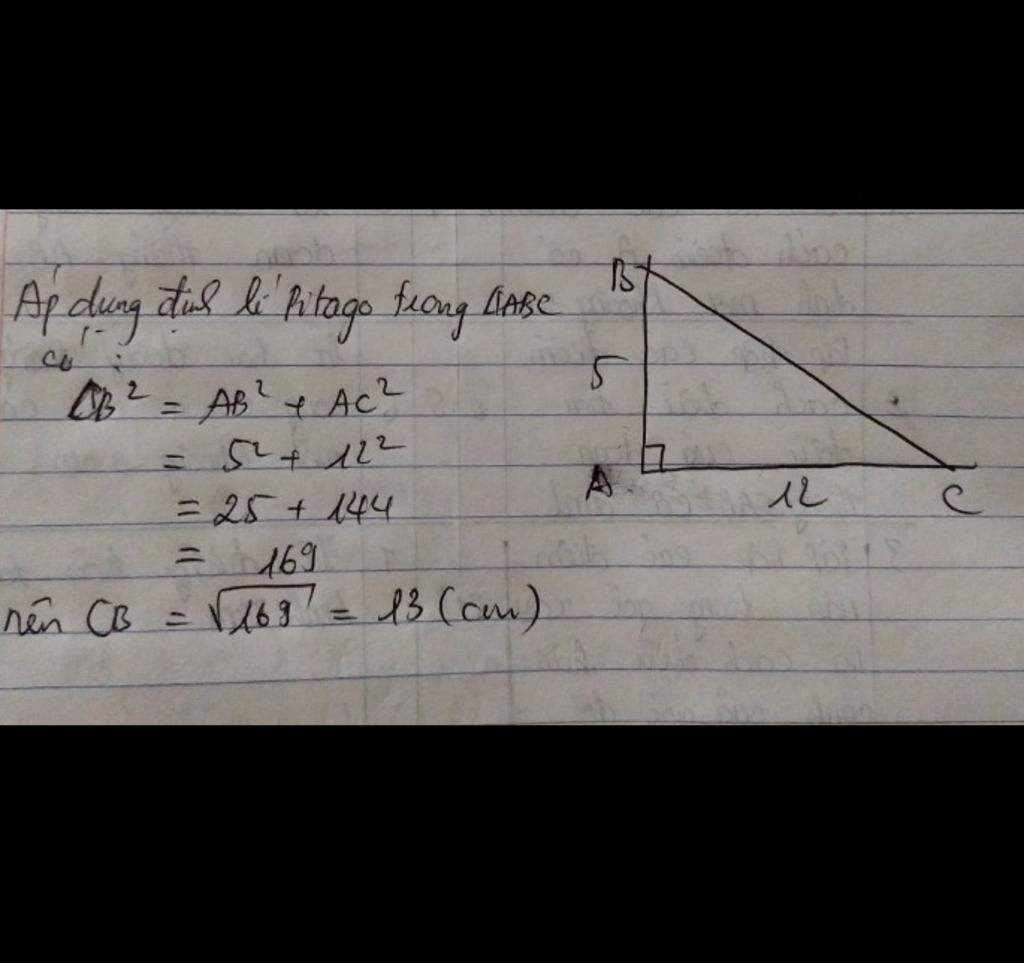 Áp dụng định lí Pitago trong ΔABC
có :
CB² = AB² + AC²
= 5² + 12²
= 25 + 144
= 169
nên CB = √169 = 13 (cm)
B
5
A
12
C